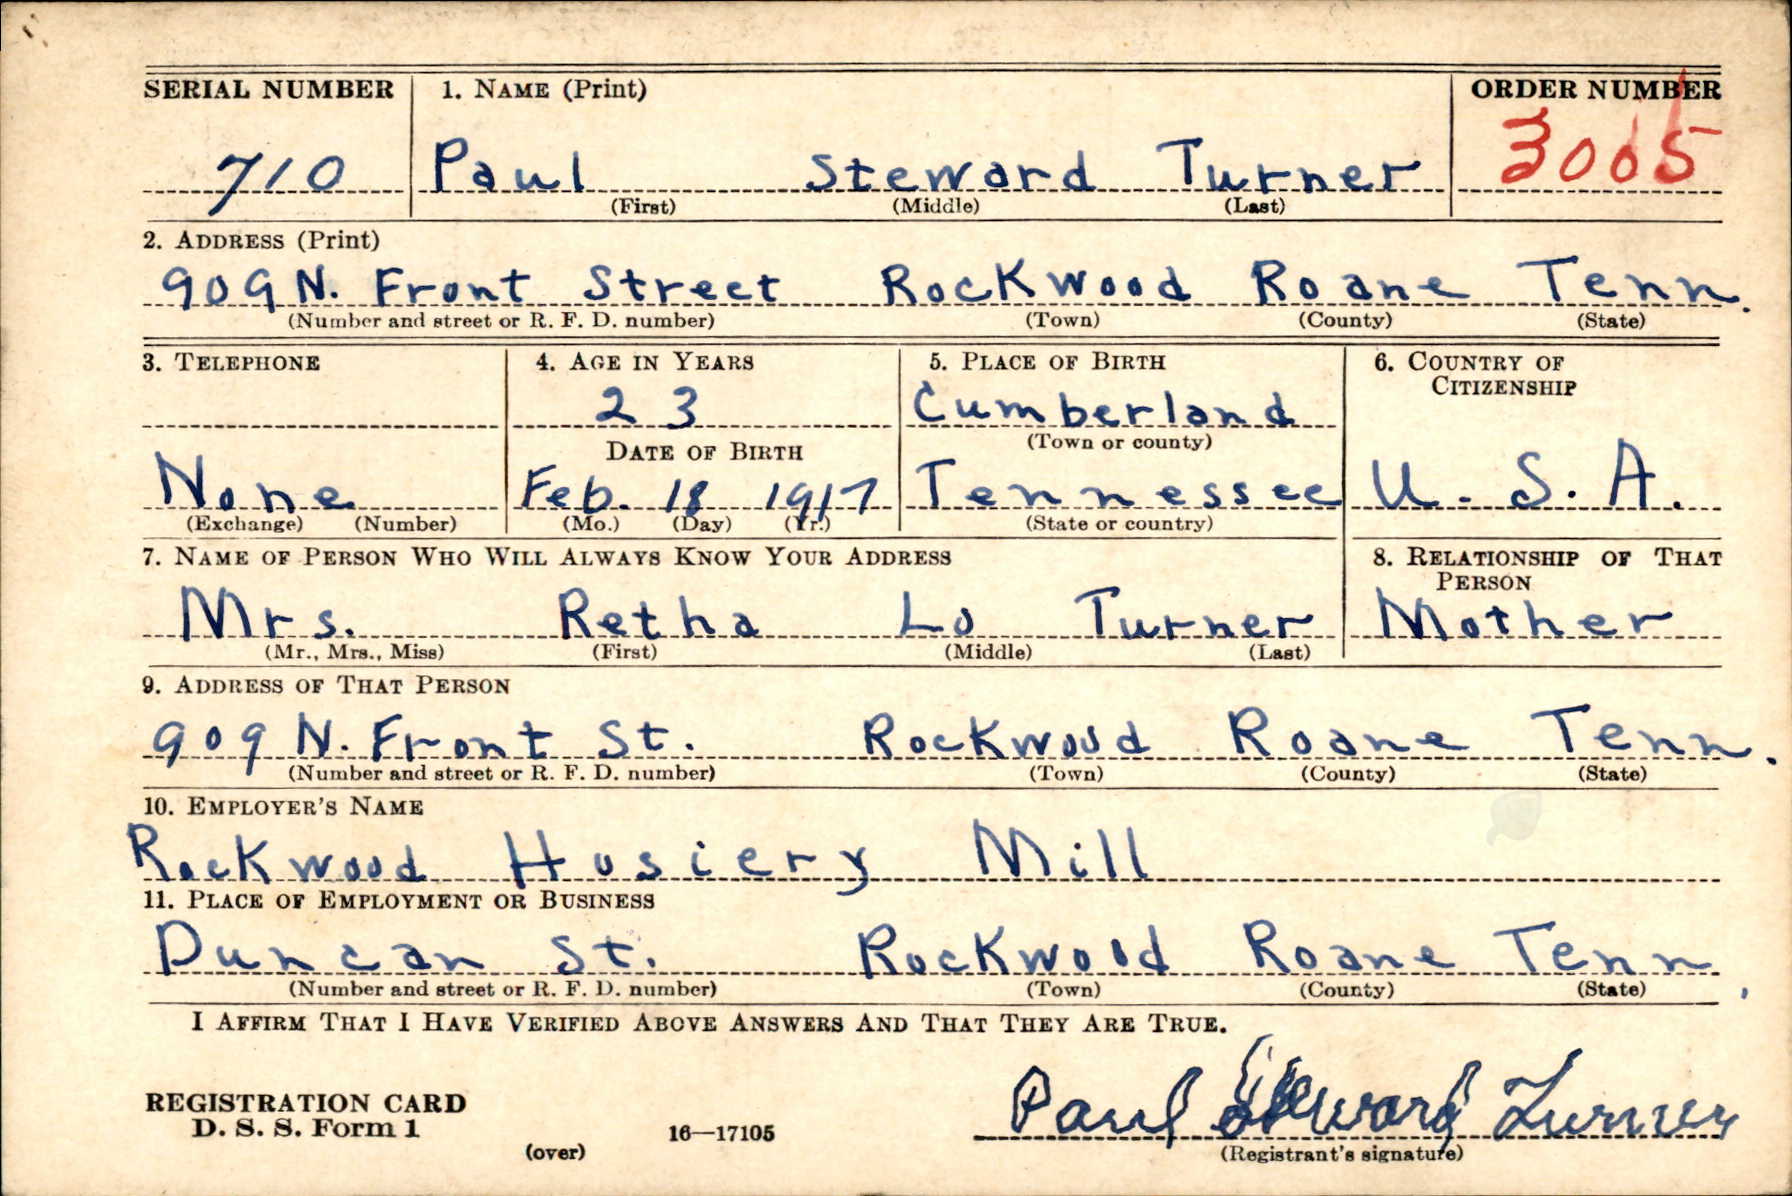 SERIAL NUMBER 1. NAME (Print) ORDER NUMBER
710 Paul Steward Turner 3005
(First) (Middle) (Last)
2. ADDRESS (Print)
909 N. Front Street Rockwood Roane Tenn.
(Number and street or R. F. D. number) (Town) (County) (State)
3. TELEPHONE 4. AGE IN YEARS 5. PLACE OF BIRTH 6. COUNTRY OF CITIZENSHIP
23 Cumberland
DATE OF BIRTH (Town or county)
None Feb. 18 1917 Tennessee U. S. A.
(Exchange) (Number) (Mo.) (Day) (Yr.) (State or country)
7. NAME OF PERSON WHO WILL ALWAYS KNOW YOUR ADDRESS 8. RELATIONSHIP OF THAT PERSON
Mrs. Retha Lo Turner Mother
(Mr., Mrs., Miss) (First) (Middle) (Last)
9. ADDRESS OF THAT PERSON
909 N. Front St. Rockwood Roane Tenn.
(Number and street or R. F. D. number) (Town) (County) (State)
10. EMPLOYER'S NAME
Rockwood Hosiery Mill
11. PLACE OF EMPLOYMENT OR BUSINESS
Duncan St. Rockwood Roane Tenn.
(Number and street or R. F. D. number) (Town) (County) (State)
I AFFIRM THAT I HAVE VERIFIED ABOVE ANSWERS AND THAT THEY ARE TRUE.
REGISTRATION CARD
D. S. S. Form 1
(over) 16—17105
Paul Steward Turner
(Registrant's signature)